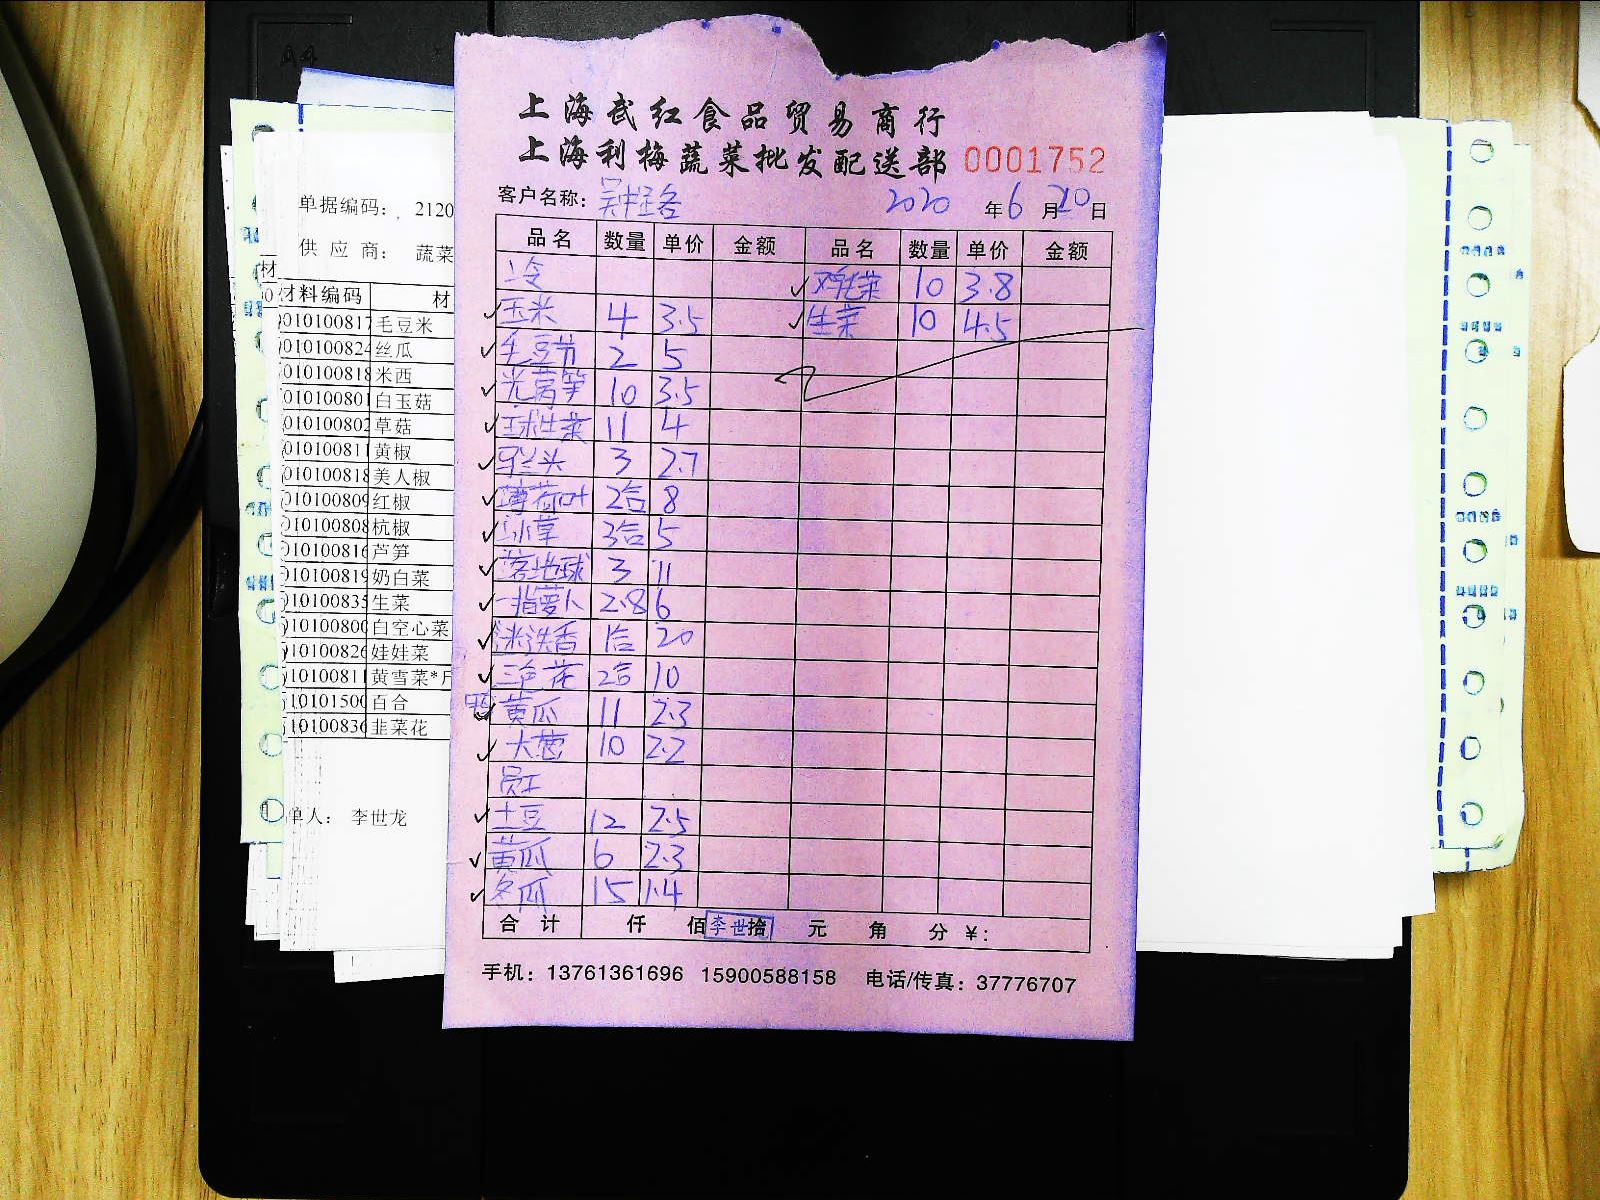 上海武红食品贸易商行
上海利梅蔬菜批发配送部 0001752
客户名称: 2020年6月20日
品名 数量 单价 金额 品名 数量 单价 金额
上冷 鸡毛菜 10 3.8
玉米 4 3.5 生菜 10 4.5
毛豆节 2 5
光莴笋 10 3.5
球生菜 11 4
马兰头 3 2.7
薄荷叶 2合 8
冰草 3合 5
落地球 3 11
一指萝卜 2.8 6
迷迭香 1合 20
三色花 2合 10
黄瓜 11 2.3
大葱 10 2.2
员工
土豆 12 2.5
黄瓜 6 2.3
冬瓜 15 1.4
合计 仟 佰 拾 元 角 分 ¥:
李世
手机: 13761361696 15900588158 电话/传真: 37776707
单据编码: 2120
供应商: 蔬菜
材料编码 材
010100817 毛豆米
010100824 丝瓜
010100818 米西
010100801 白玉菇
010100802 草菇
010100811 黄椒
010100818 美人椒
010100809 红椒
010100808 杭椒
010100816 芦笋
010100819 奶白菜
010100835 生菜
010100800 白空心菜
010100826 娃娃菜
010100811 黄雪菜*斤
010101500 百合
010100836 韭菜花
单人: 李世龙
A4